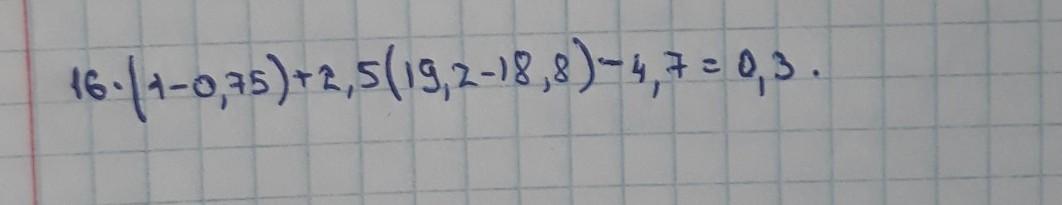 16·(1-0,75)+2,5(19,2-18,8)-4,7=0,3.